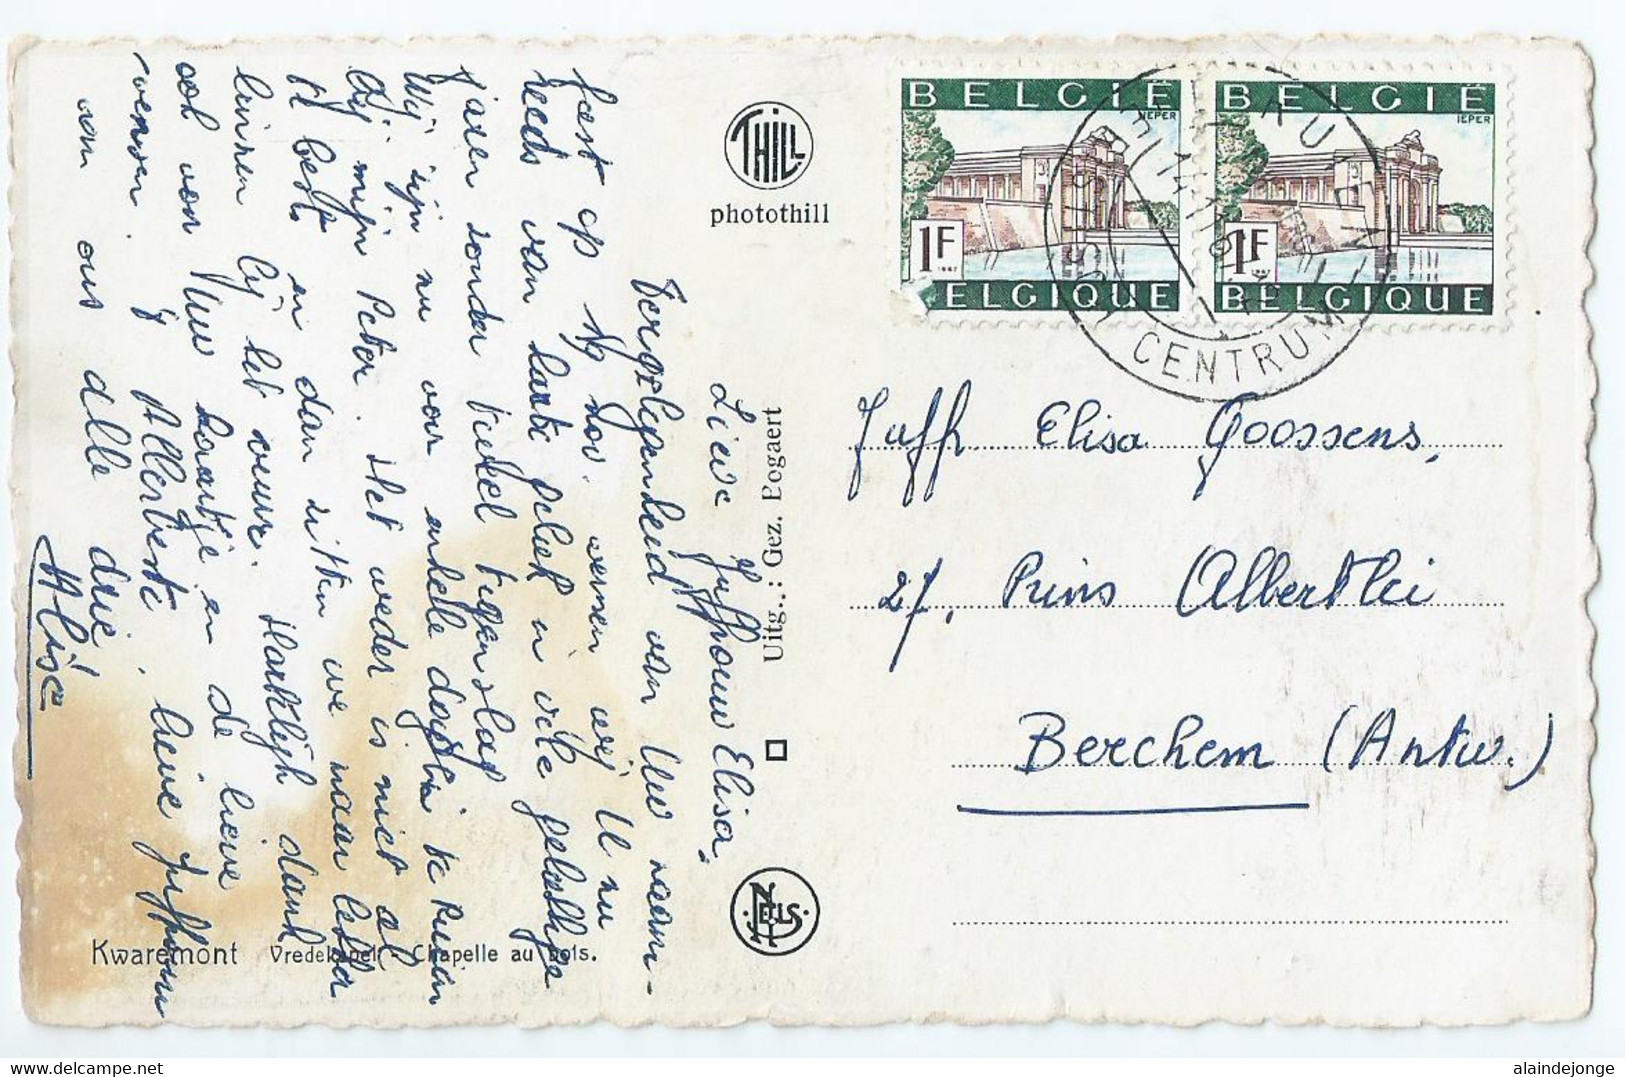 Lieve Juffrouw Elisa.
Ter gelegenheid van Uw naam-
feest op 19 Nov. wensen wij U nu
reeds van harte geluk en vele gelukkige
jaren zonder veel tegenslag
Wij zijn nu voor enkele dagen te
bij mijn Peter. Het weder is niet al
te best en dan zitten we maar lekker
binnen bij het vuur. Hartelijk dank
ook voor Uw kaartje en de lieve
wensen. Allerbeste lieve juffrouw
van ons alle drie
Alise
THILL
photothill
Uitg.: Gez. Bogaert
NELS
Kwaremont Vredekapel - Chapelle au bois.
BELGIË
IEPER
1F
1967
BELGIQUE
BELGIË
IEPER
1F
1967
BELGIQUE
CENTRUM
Juffr Elisa Goossens,
27, Prins Albertlei
Berchem (Antw.)
alaindejonge
delcampe.net